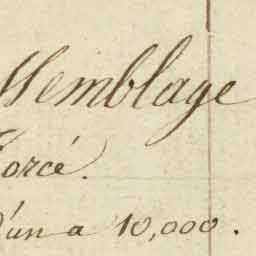 ssemblage
Forcé.
d'un a 10,000.